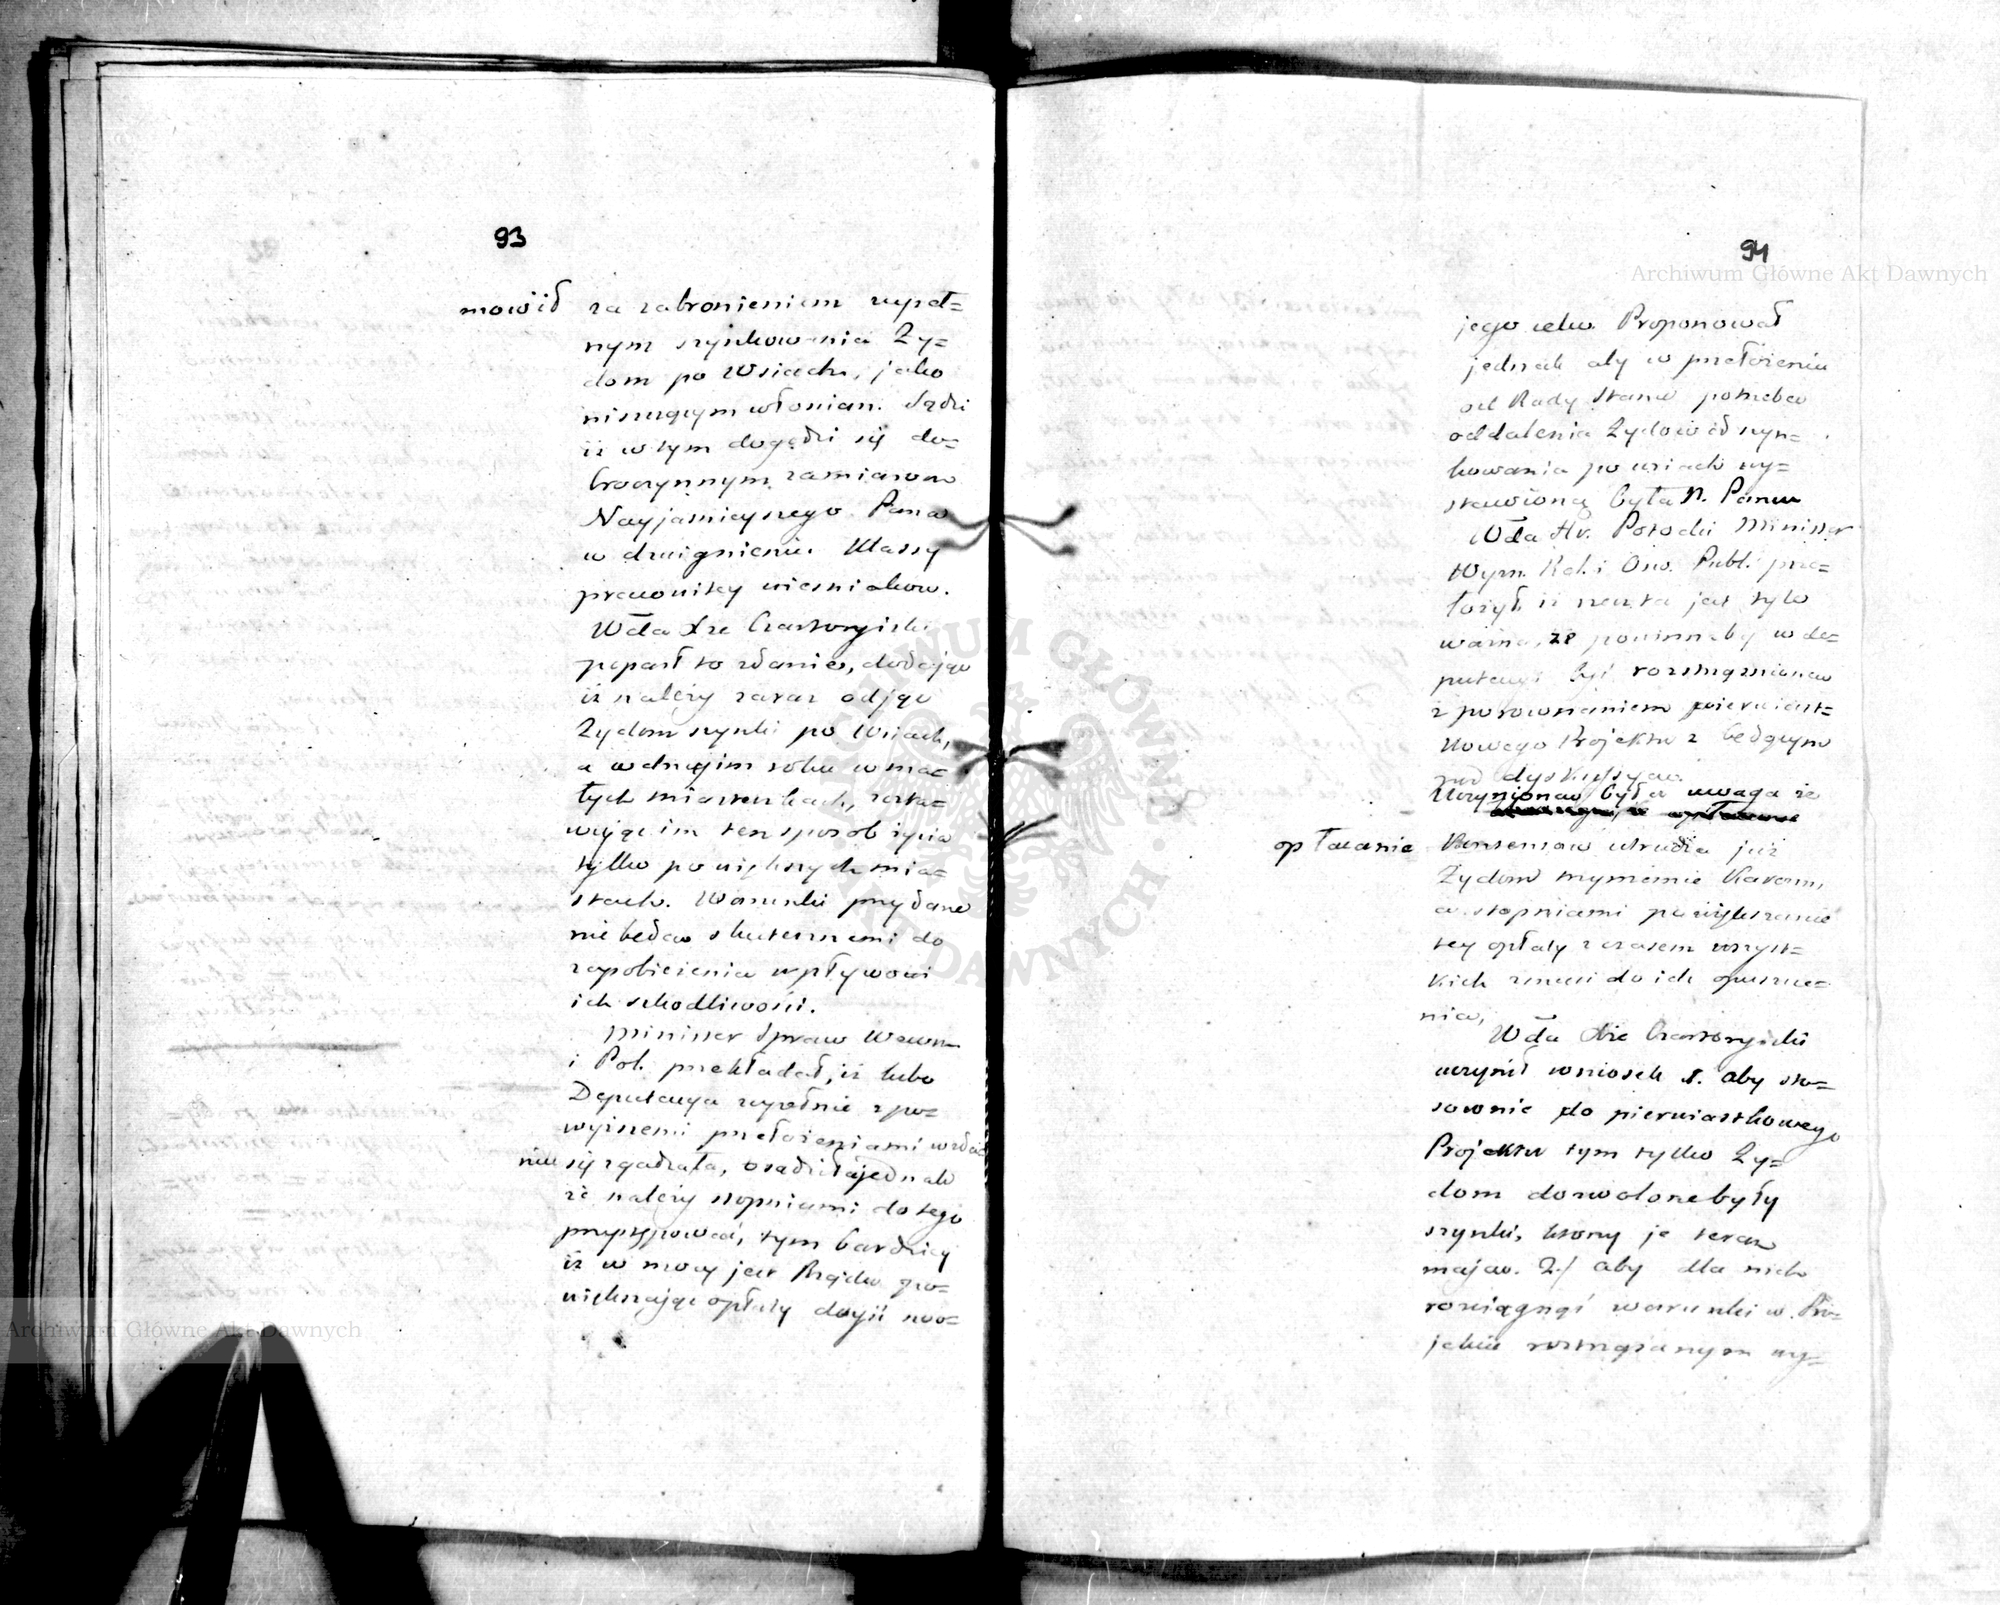 93
mowił za zabronieniem zupeł=
nym szynkowania Ży=
dom po Wsiach, jako
niszczącym włościan. Sądzi
iż w tym dogodzi się do=
broczynnym zamiarom
Nayjaśnieyszego Pana
w dźwignieniu Klassy
pracowitey wieśniakow.
Wda Xże Czartoryiski
poparł to zdanie, dodając
iż należy zaraz odjąć
Żydom szynki po Wsiach,
a w drugim roku w ma=
łych miasteczkach, zosta=
wując im ten sposob życia
tylko po większych mia=
stach. Warunki przydane
nie będą skutecznemi do
zapobieżenia wpływowi
ich szkodliwości.
Minister Spraw Wewn.
i Pol. przekładał, iż lubo
Deputacya zupełnie z po=
wyższemi przełożeniami w zda
niu się zgadzała, osądziła jednak
że należy stopniami do tego
przystępować, tym bardziey
iż w mocy jest Rządu po=
większając opłaty doyść swo=
94
jego celu. Proponował
jednak aby w przełożeniu
od Rady Stanu potrzeba
oddalenia Żydow od szyn=
kowania po wsiach wy=
stawioną była N. Panu
Wda Hr. Potocki Minister
Wyzn. Rel. i Ośw. Publ. prze=
łożył iż rzecz ta jest tyle
ważna, że powinnaby w de=
putacyi być roztrząśniona
z porownaniem pierwiast=
kowego Projektu z będącym
pod dyskussyą.
Uczyniona była uwaga że
opłacanie Konsensow utrudza już
Żydom trzymanie Karczm,
a stopniami powiększanie
tey opłaty z czasem wszyst=
kich zmusi do ich opuszcze=
nia,
Wda Xże Czartoryiski
uczynił wniosek 1. aby sto=
sownie do pierwiastkowego
Projektu tym tylko Ży=
dom dozwolone były
szynki, ktorzy je teraz
mają. 2./ aby dla nich
rozciągnąć warunki w Pro=
jekcie roztrząsanym wy=
Archiwum Główne Akt Dawnych
Archiwum Główne Akt Dawnych
ARCHIWUM GŁÓWNE AKT DAWNYCH